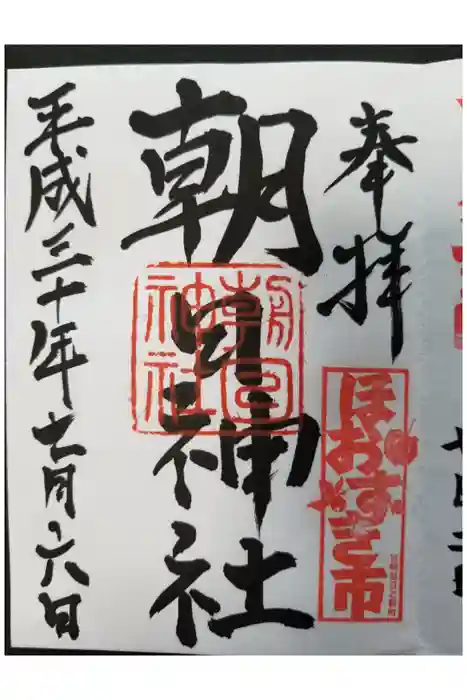 奉拝
ほおずき市
朝日神社
朝日
神社
平成三十年七月六日